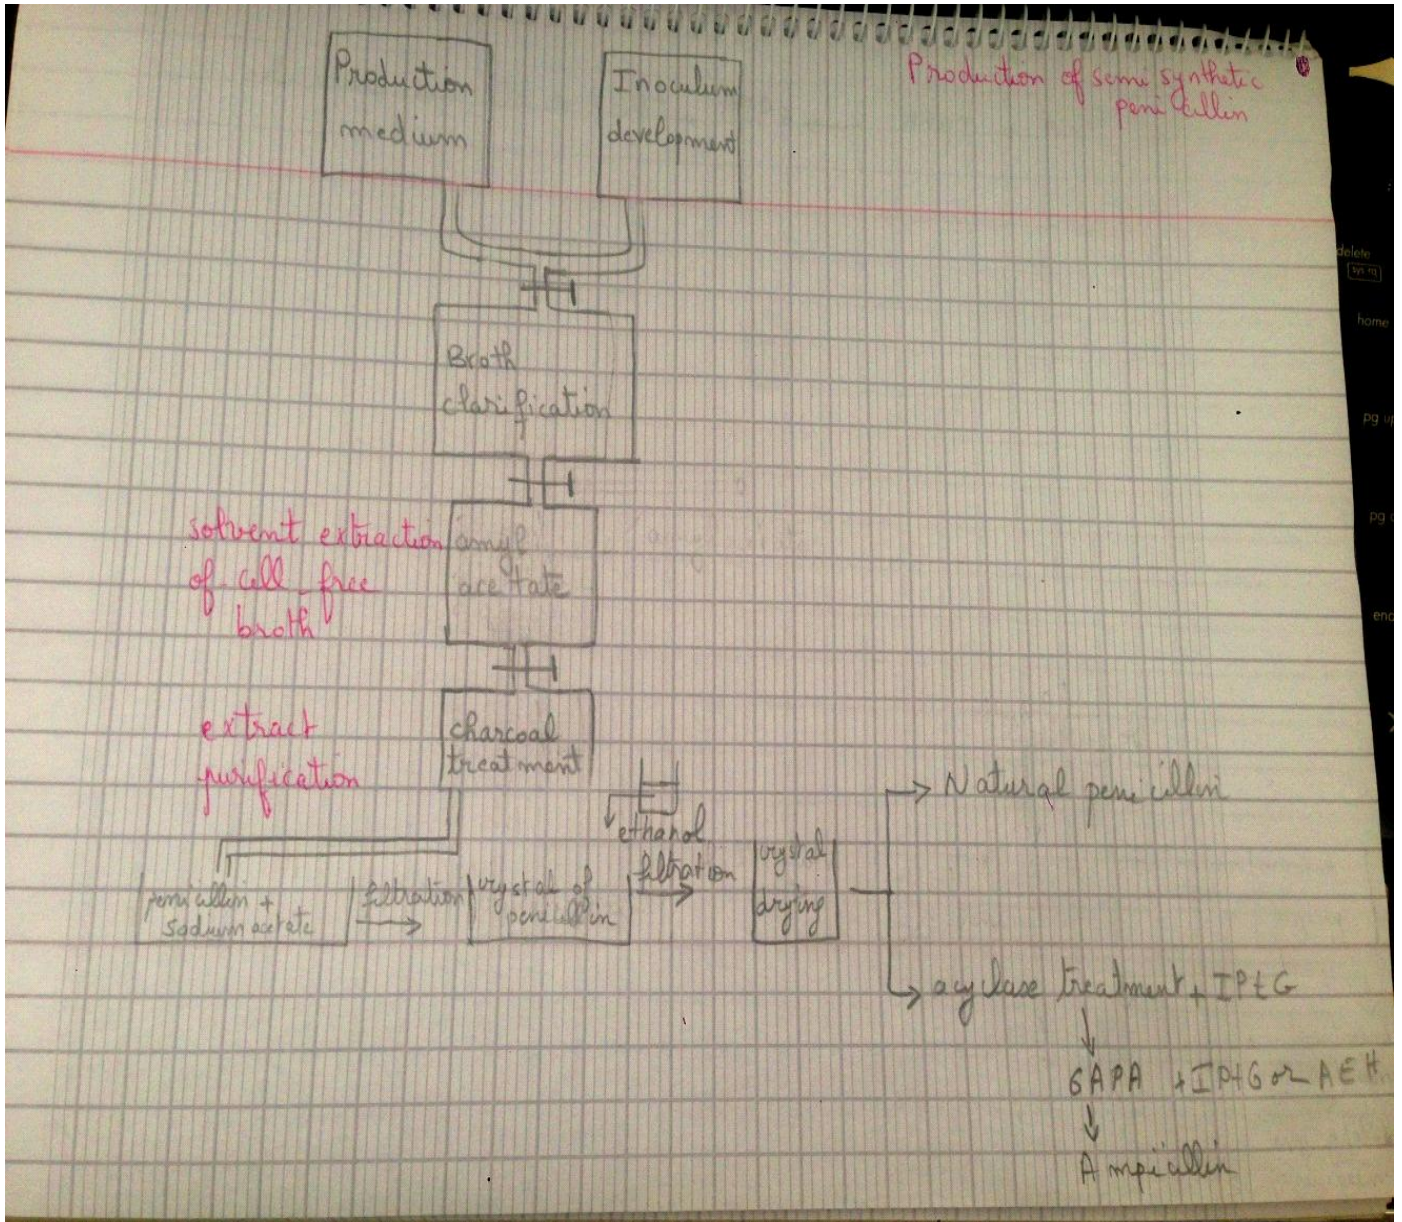 Production of semi synthetic
penicillin
Production
medium
Inoculum
development
Broth
clarification
solvent extraction
of cell-free
broth
amyl
acetate
extract
purification
charcoal
treatment
ethanol
penicillin +
sodium acetate
filtration
crystal of
penicillin
filtration
crystal
drying
Natural penicillin
acylase treatment + IPtG
6APA + IPtG or AEH
Ampicillin
delete
sys rq
home
pg up
pg
end